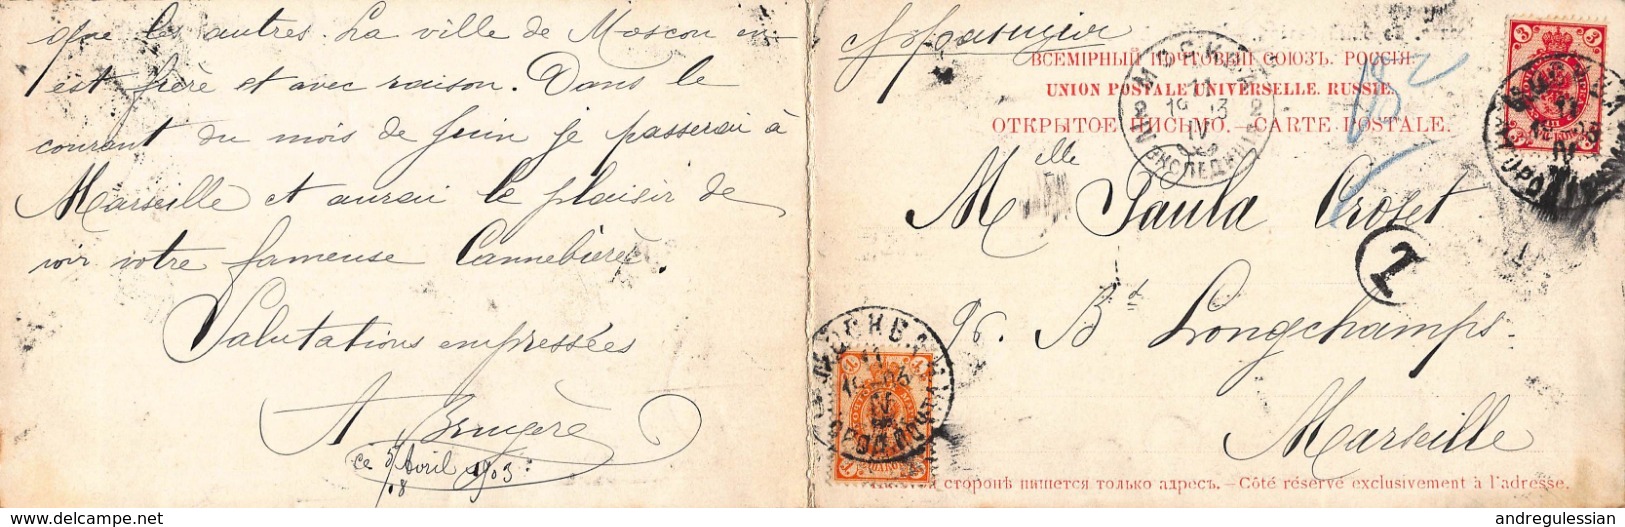 que les autres. La ville de Moscou en
est fière et avec raison. Dans le
courant du mois de Juin je passerai à
Marseille et aurai le plaisir de
voir votre fameuse Cannebière.
Salutations empressées
A Brugère
ce 5/18 Avril 1903:
ВСЕМІРНЫЙ ПОЧТОВЫЙ СОЮЗЪ. РОССІЯ.
UNION POSTALE UNIVERSELLE. RUSSIE.
ОТКРЫТОЕ ПИСЬМО.—CARTE POSTALE.
МОСКВА
11
IV
2 ЭКСПЕДИЦІЯ 2
3 3
1
Melle Paula Crozet
96. Bt Longchamps.
Marseille
1 1
сторонѣ пишется только адресъ.—Côté réservé exclusivement à l'adresse.
andregulessian